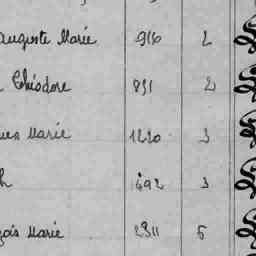 Auguste Marie 916 2
Théodore 891 2
Marie 1220 3
h 1492 3
çois Marie 2311 5